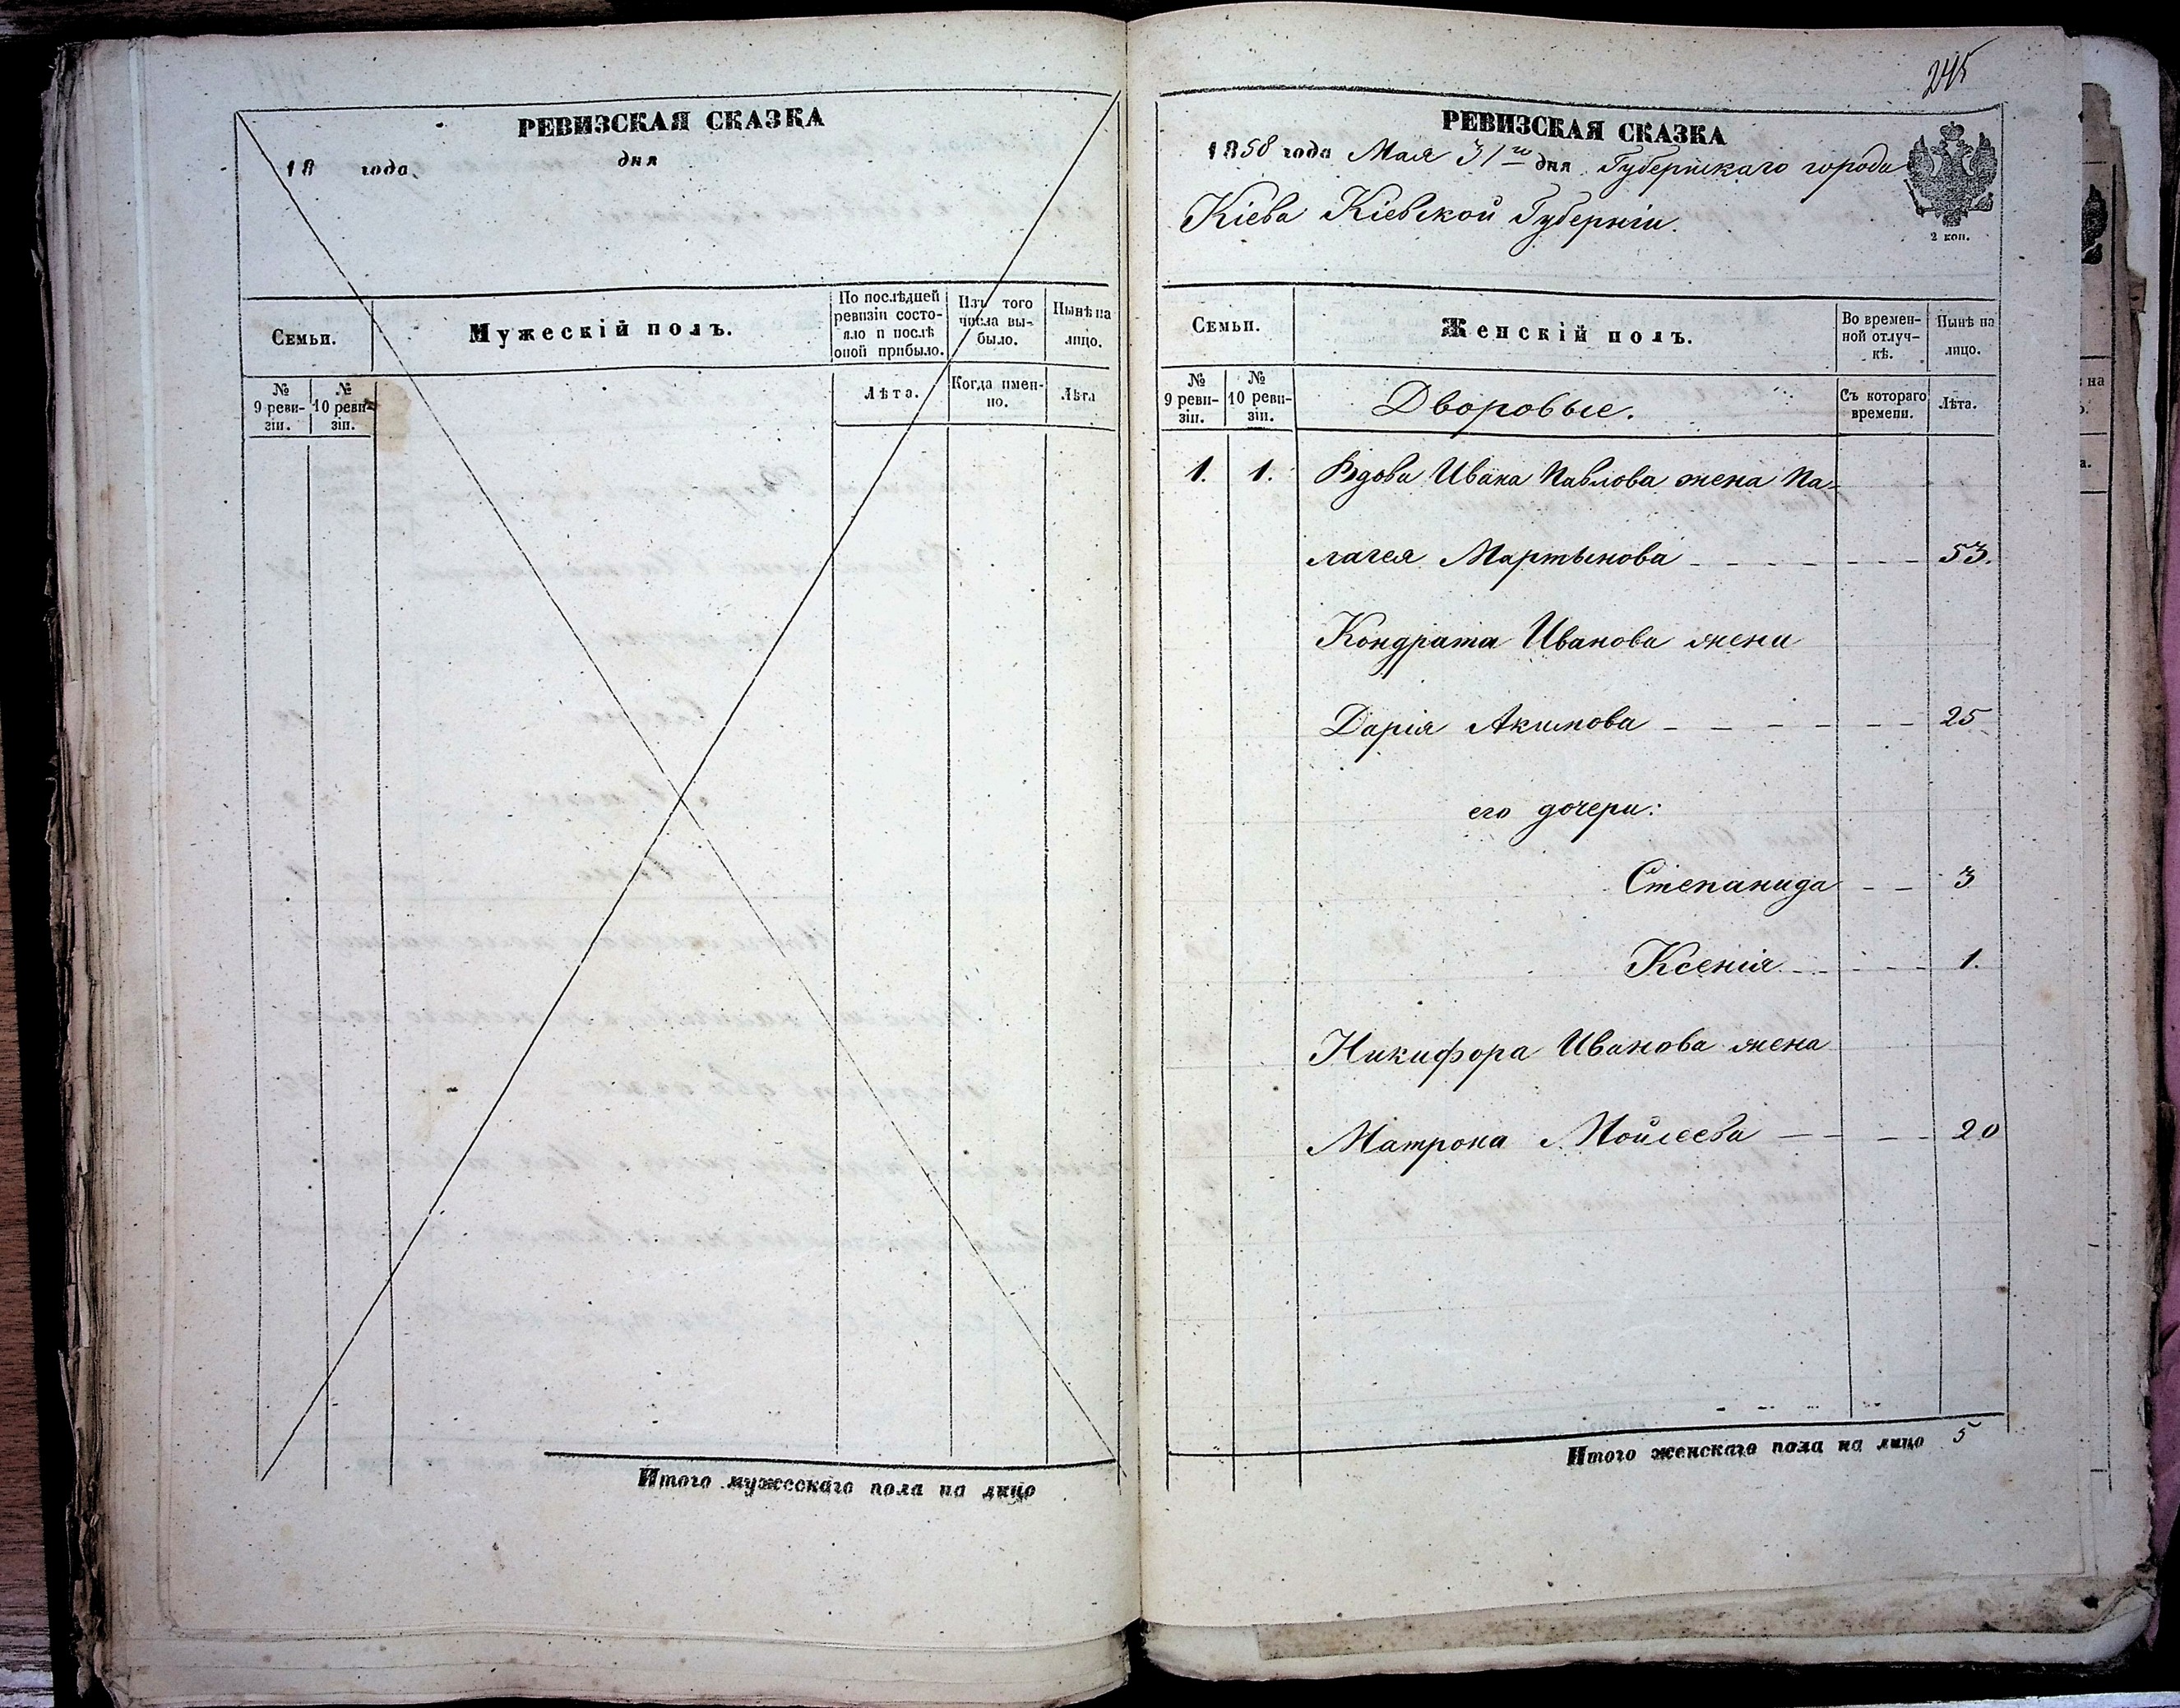 РЕВИЗСКАЯ СКАЗКА
18 года дня
Семьи.
Мужескій полъ.
По послѣдней ревизіи состояло и послѣ оной прибыло.
Изъ того числа выбыло.
Нынѣ на лицо.
№ 9 ревизіи.
№ 10 ревизіи.
Лѣта.
Когда именно.
Лѣта
Итого мужескаго пола на лицо
245
РЕВИЗСКАЯ СКАЗКА
1858 года Мая 31го дня Губернскаго города
Кіева Кіевской Губерніи.
2 коп.
Семьи.
Женскій полъ.
Во временной отлучкѣ.
Нынѣ на лицо.
№ 9 ревизіи.
№ 10 ревизіи.
Дворовые.
Съ котораго времени.
Лѣта.
1. 1. Вдова Ивана Павлова жена Па-
лагея Мартынова 53.
Кондрата Иванова жена
Дарія Акимова 25
его дочери:
Степанида 3
Ксенія 1.
Никифора Иванова жена
Матрона Мойсеева 20
Итого женскаго пола на лицо 5